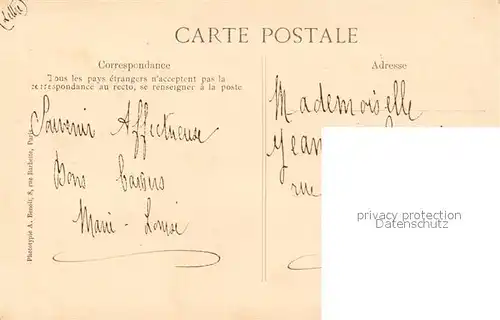 (Lille)
CARTE POSTALE
Correspondance
Tous les pays étrangers n'acceptent pas la
correspondance au recto, se renseigner à la poste
Souvenir Affectueuse
Bons baisers
Marie-Louise
Phototypie A. Benoît, 8, rue Barbette, Paris
Adresse
Mademoiselle
Jean
rue
privacy protection
Datenschutz